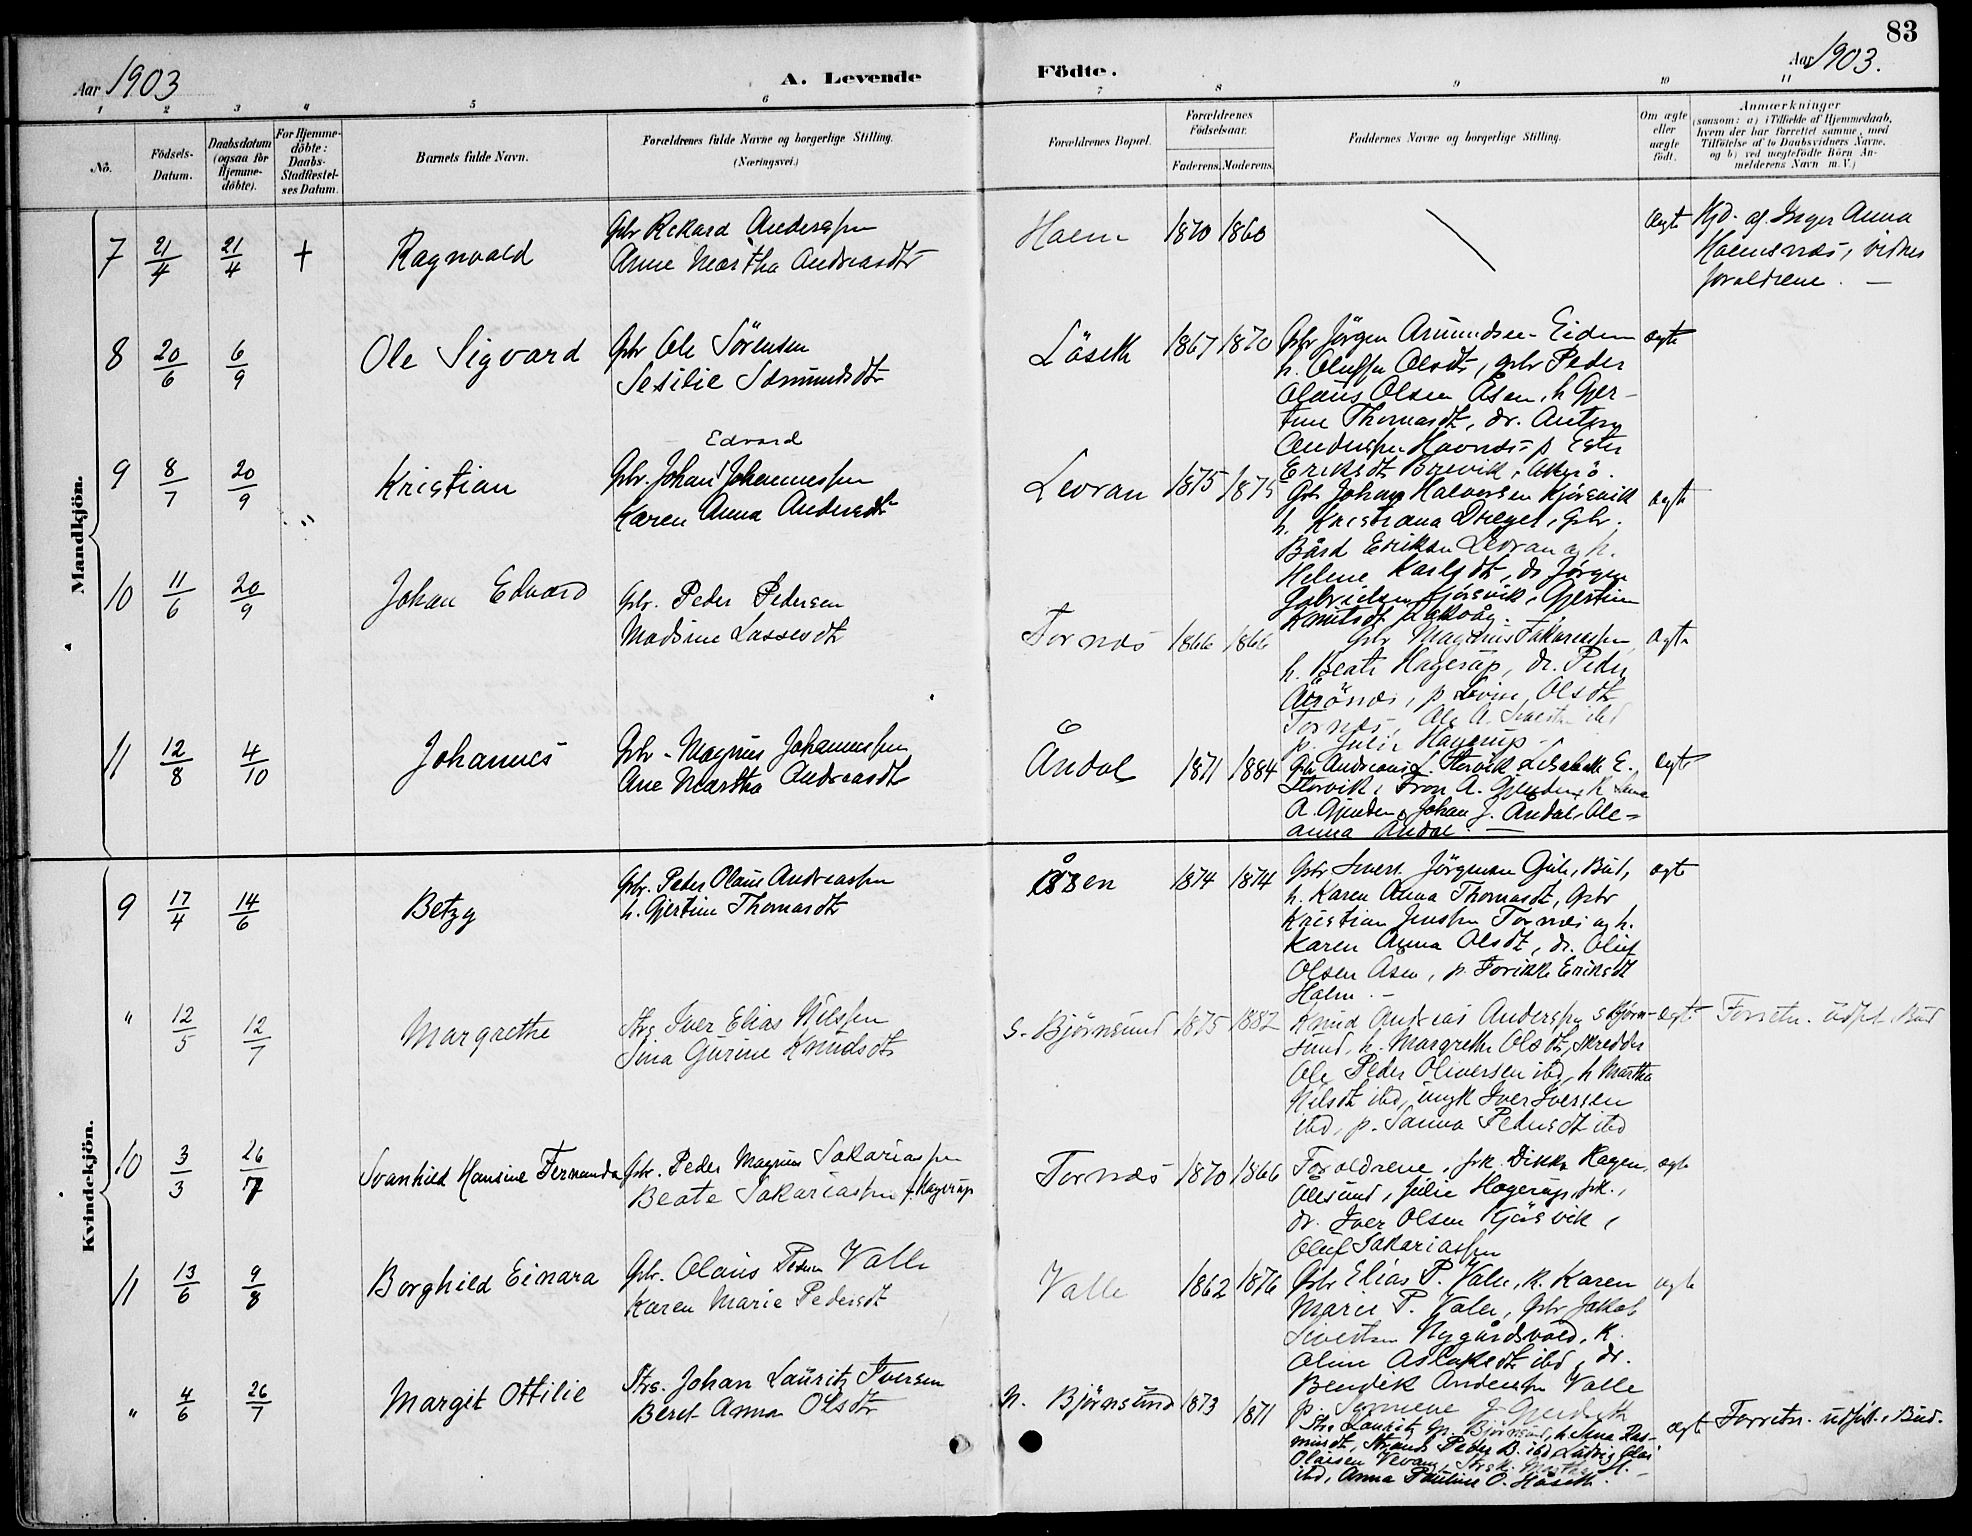 83
Aar 1903
A. Levende
Födte.
Aar 1903.
1 2 3 4 5 6 7 8 9 10 11
No.
Födsels-Datum.
Daabsdatum (ogsaa for Hjemme-döbte).
For Hjemme-döbte: Daabs-Stadfæstel-ses Datum.
Barnets fulde Navn.
Forældrenes fulde Navne og borgerlige Stilling.
(Næringsvei.)
Forældrenes Bopæl.
Forældrenes Födselsaar.
Faderens. Moderens.
Faddernes Navne og borgerlige Stilling.
Om ægte eller uægte födt.
Anmærkninger
(saasom: a) i Tilfælde af Hjemmedaab, hvem der har forrettet samme, med Tilföielse af to Daabsvidners Navne, og b) ved uægtefödte Börn An-melderens Navn m. V.)
Mandkjön.
7 21/4 21/4 + Ragnvald
Gbr Rikard Anderssen
Anne Martha Andreasdtr
Holm 1870 1860
ægte
Hjd. af Inger Anna
Holmsnæs, vidner
forældrene. —
8 20/6 6/9 Ole Sigvard
Gbr Ole Sörensen
Sesilie Samundsdtr
Läseth 1867 1870
Gbr Jörgen Amundsen Eiden
h. Oluffa Olsdtr, gbr Peder
Olaus Olsen Åsen, h Gjer-
tine Thomasdt, dr. Anton
Anderssen Havnæs, p. Ester
Eriksdt Brevik, Akerö.
ægte
9 8/7 20/9 Kristian
Edvard
Gbr. Johan Johannessen
Karen Anna Andersdtr
Levran 1875 1875
Gbr Johan Halvorsen Kjörsvik
h. Kristiana Dreyer, Gbr.
Bård Eriksen Levran og h.
Helene Karlsdt, dr Jörgen
Gabrielsen Kjörsvik, Gjertine
Knutsdt
ægte
10 11/6 20/9 Johan Edvard
Gbr. Peder Pedersen
Madsine Lassesdtr
Tornæs 1866 1866
Gbr Magnus Sakariassen,
h. Beate Hagerup, dr. Peder
p Olsdt
Tornæs, Ole A. ibd
p. Julie Hagerup.
ægte
11 12/8 4/10 Johannes
Gbr. Magnus Johannessen
Ane Martha Andreasdtr
Åndal 1871 1884
Gbr Andreas L. Storvik, Elisabeth E.
Storvik, Tron A. Gjenden, h
A. Gjenden, Johan J. Åndal, Ole-
anna Åndal. —
ægte
Kvindekjön.
9 17/4 14/6 Betzy
Gbr. Peder Olaus Andreassen
h. Gjertine Thomasdtr
Åsen 1874 1874
Gbr Sivert Jörgensen Bud,
h. Karen Anna Thomasdt, Gbr
Kristian Jenssen Tornæs og h.
Karen Anna Olsdt, dr. Oluf
Olsen Åsen, p. Eriksdt
Holm. —
ægte
" 12/5 12/7 Margrethe
Strs Iver Elias Nilssen
Sina Gurine Knudsdtr
S. Björnsund 1875 1882
Knud Andreas Anderssen S Björn-
sund, h. Margrethe Olsdt, skredder
Ole Peder Oliversen ibd, h Martha
Nilsdt ibd, ungk Iver Iversen
ibd, p. Sanna Pedersdt ibd
ægte
Forretn. udført i Bud
10 3/3 26/7 Svanhild Hansine Fernanda
Gbr. Peder Magnus Sakariassen
Beate Sakariassen f. Hagerup
Tornæs 1870 1866
Forældrene, frk. Dikka Hagen,
Ålesund, Julie Hagerup, frk.,
dr. Iver Olsen Kjörsvik,
Oluf Sakariassen
ægte
11 13/6 9/8 Borghild Einara
Gbr. Olaus Peders Valle
Karen Marie Pedersdt
Valle 1862 1876
Gbr Elias P. Valle, k. Karen
Marie P. Valle, Gbr Jakob
Sivertsen Nygårdsvold, k.
Oline Aslaksdt ibd, dr.
Bendik Anderssen Valle
p.
ægte
" 4/6 26/7 Margit Ottilie
Strs. Johan Lauritz Iversen
Beret Anna Olsdtr
N. Björnsund 1873 1871
Strs Lauritz Björnsund, h Sina Ras-
musdt, Peder B. ibd Ludvig Olai
Olaisen Vevang, Martha
ibd, Anna Pauline O. Håseth.
ægte
Forretn. udført i Bud.